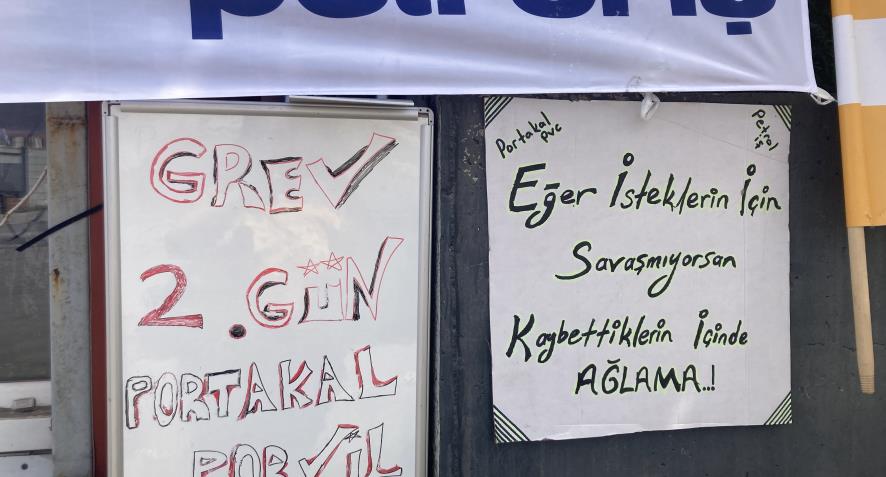 petrol-iş
GREV
2.GÜN
PORTAKAL
PORVİL
Portakal
pvc
Petrol
iş
Eğer İsteklerin İçin
Savaşmıyorsan
Kaybettiklerin İçinde
AĞLAMA..!